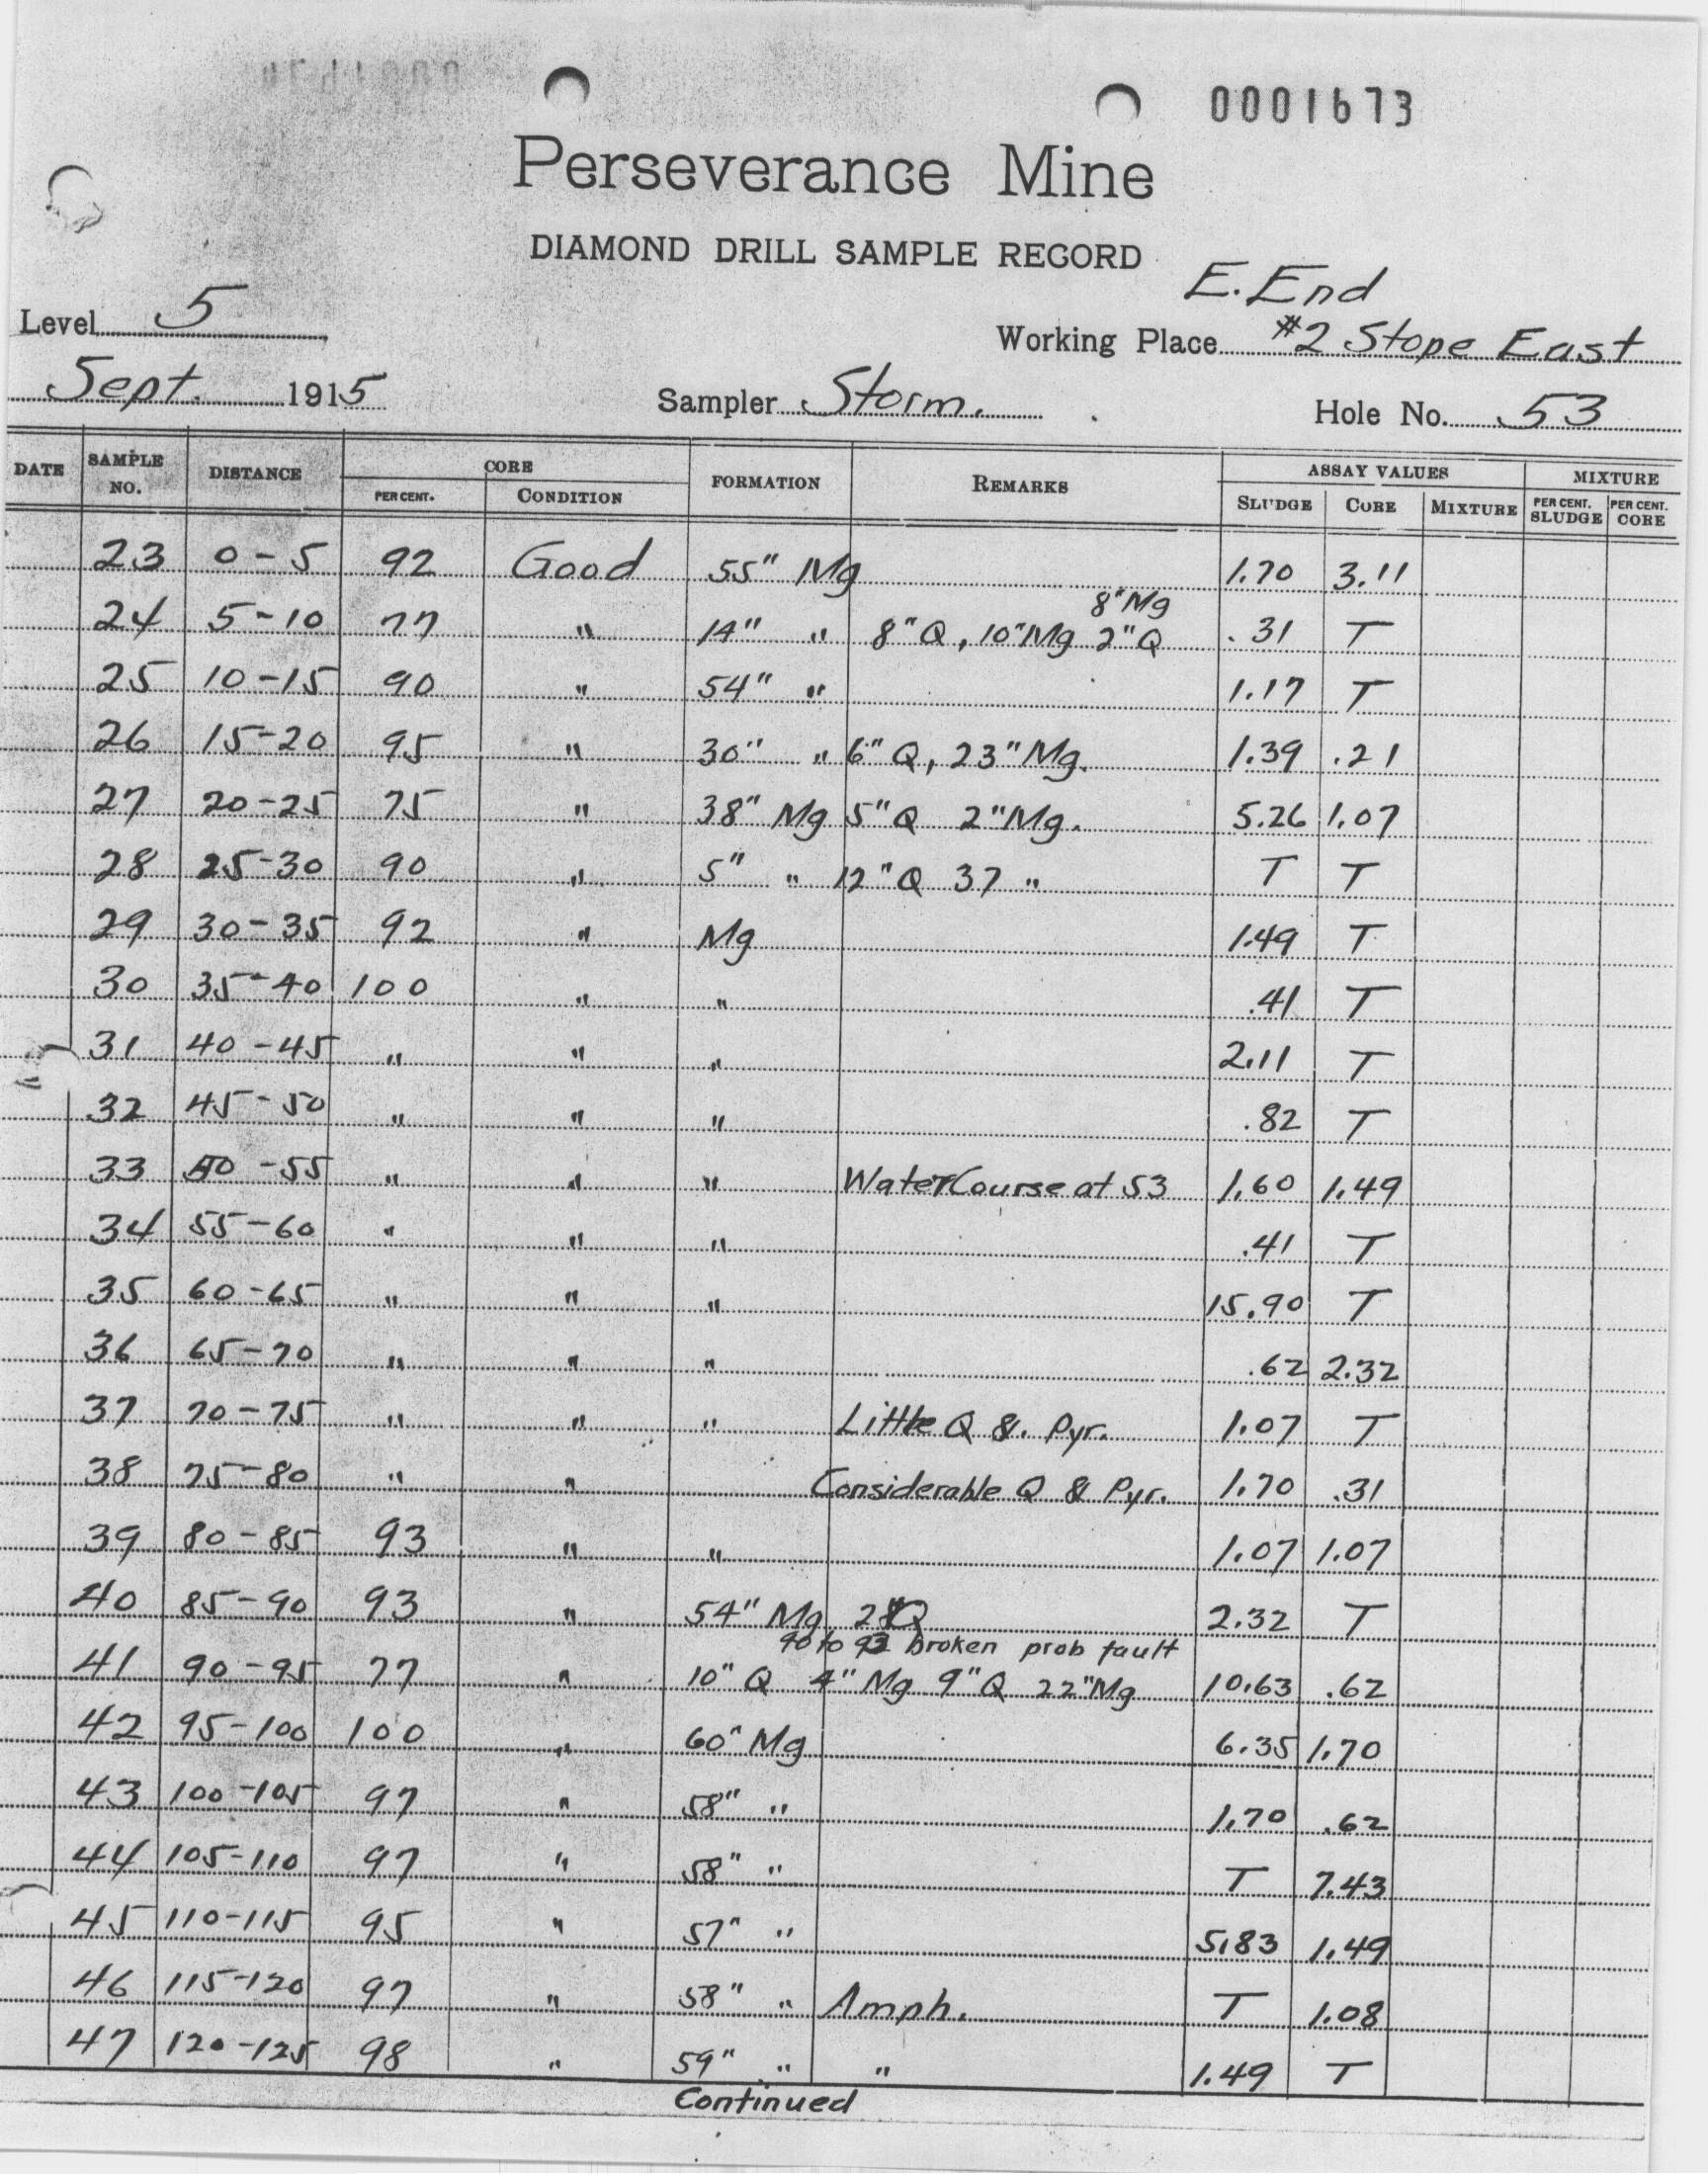 0001673
Perseverance Mine
DIAMOND DRILL SAMPLE RECORD
E. End
Level 5 Working Place #2 Stope East
Sept. 1915 Sampler Storm. Hole No. 53
DATE SAMPLE NO. DISTANCE CORE FORMATION REMARKS ASSAY VALUES MIXTURE
PER CENT. CONDITION SLUDGE CORE MIXTURE PER CENT. SLUDGE PER CENT. CORE
23 0-5 92 Good 55" Mg 1.70 3.11
8" Mg
24 5-10 77 " 14" " 8" Q, 10" Mg 2" Q .31 T
25 10-15 90 " 54" " 1.17 T
26 15-20 95 " 30" " 6" Q, 23" Mg. 1.39 .21
27 20-25 75 " 38" Mg 5" Q 2" Mg. 5.26 1.07
28 25-30 90 " 5" " 12" Q 37 " T T
29 30-35 92 " Mg 1.49 T
30 35-40 100 " " .41 T
31 40-45 " " " 2.11 T
32 45-50 " " " .82 T
33 50-55 " " " Water Course at 53 1.60 1.49
34 55-60 " " " .41 T
35 60-65 " " " 15.90 T
36 65-70 " " " .62 2.32
37 70-75 " " " Little Q &. Pyr. 1.07 T
38 75-80 " " Considerable Q & Pyr. 1.70 .31
39 80-85 93 " " 1.07 1.07
40 85-90 93 " 54" Mg 2" Q 2.32 T
90 to 93 broken prob fault
41 90-95 77 " 10" Q 4" Mg 9" Q 22" Mg 10.63 .62
42 95-100 100 " 60" Mg 6.35 1.70
43 100-105 97 " 58" " 1.70 .62
44 105-110 97 " 58" " T 7.43
45 110-115 95 " 57" " 5.83 1.49
46 115-120 97 " 58" " Amph. T 1.08
47 120-125 98 " 59" " " 1.49 T
Continued